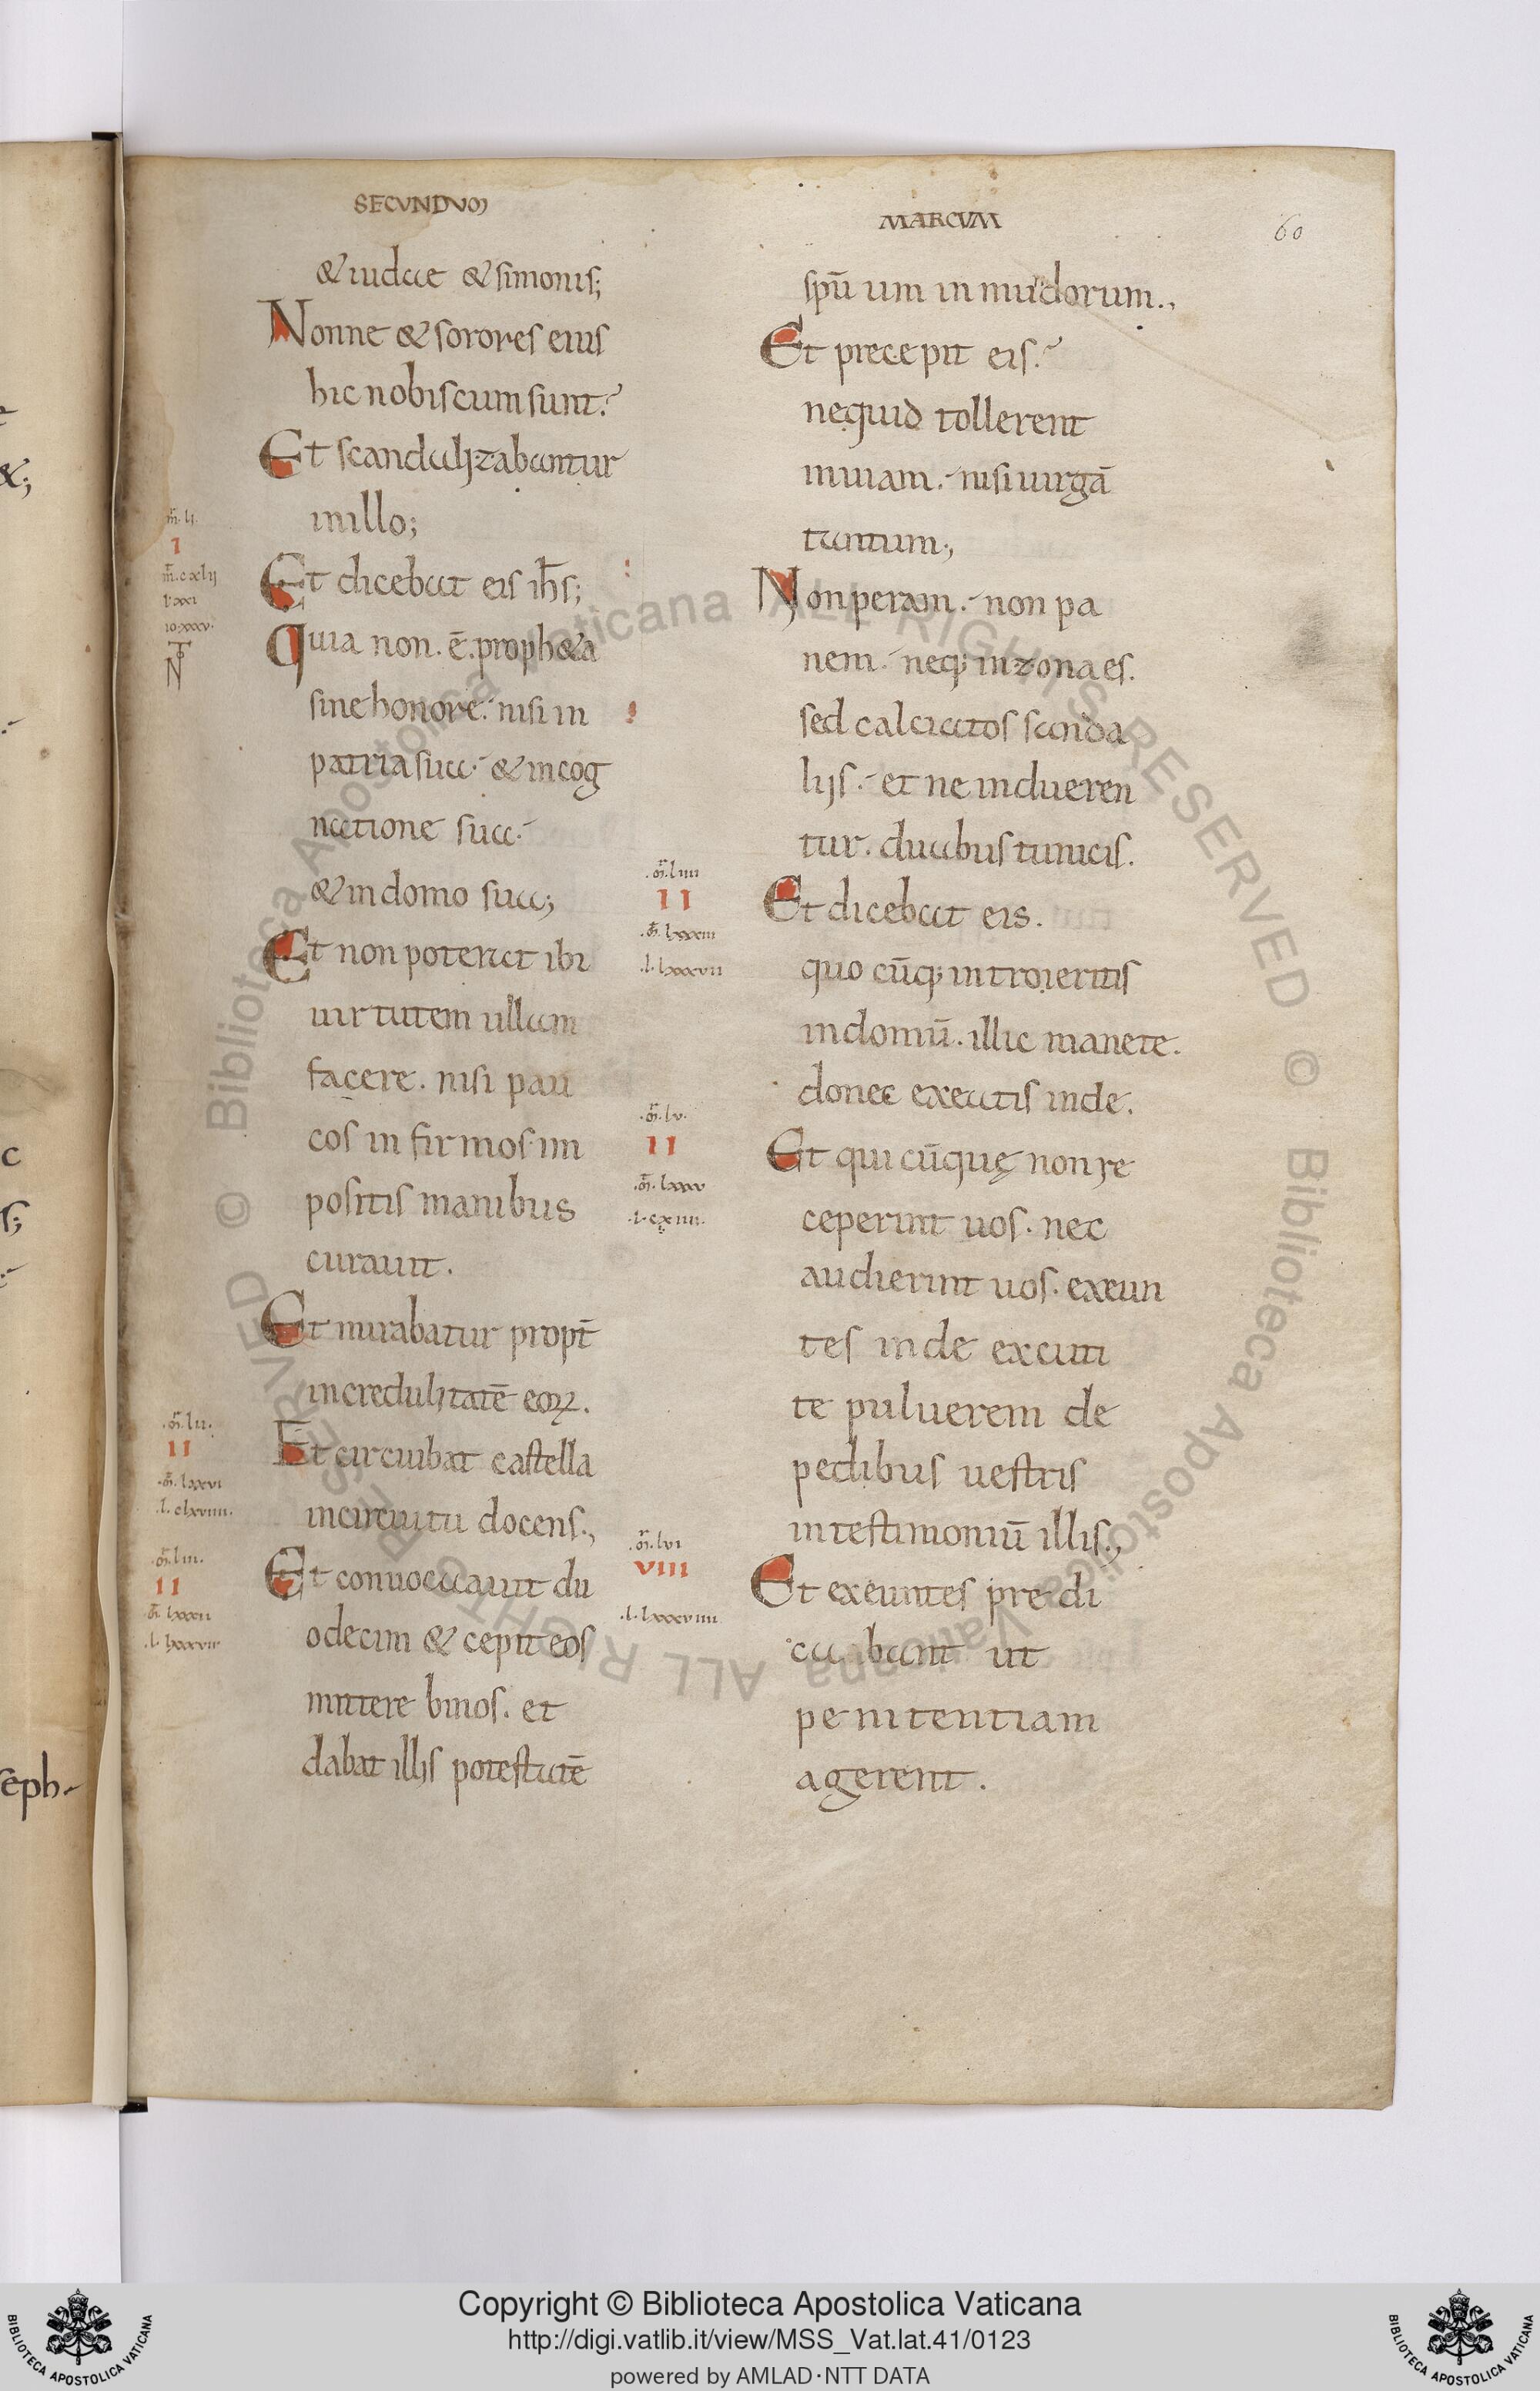 SECVNDVM
& iudae & simonis;
Nonne & sorores eius
hic nobiscum sunt.
Et scandalizabantur
in illo;
Et dicebat eis ih̄s;
Quia non .ē. proph&a
sine honore. nisi in
patria sua. & in cog
natione sua.
& in domo sua;
Et non poterat ibi
uirtutem ullam
facere. nisi pau
cos infirmos im
positis manibus
curauit.
Et mirabatur propt̄
incredulitatē eoꝝ.
Et circuibat castella
in circuitu docens.,
Et conuocauit du
odecim & cepit eos
mittere binos. et
dabat illis potestatē
m̄. li.
I
m̄. cxlii
l. xxi
io. xxxv.
m̄. lii.
II
m̄. lxxvi
l. clxviiii.
m̄. liii.
II
m̄. lxxxii
l. lxxxvii
MARCVM
60
spū um inmundorum.,
Et precepit eis.
nequid tollerent
in uiam. nisi uirgā
tantum.,
Non peram. non pa
nem. neq; in zona es.
sed calciatos sanda
liis. et ne indueren
tur. duabus tunicis.
Et dicebat eis.
quo cūq; introieritis
in domū. illic manete.
donec exeatis inde.
Et qui cūquę non re
ceperint uos. nec
audierint uos. exeun
tes inde excuti
te puluerem de
pedibus uestris
in testimoniū illis.,
Et exeuntes predi
cabant ut
penitentiam
agerent.
m̄. liiii
II
m̄. lxxxiii
l. lxxxvii
m̄. lv.
II
m̄. lxxxv
l. cxiiii.
m̄. lvi
VIII
l. lxxxviiii
&;
c
s;
seph
© Biblioteca Apostolica Vaticana ALL RIGHTS RESERVED © Biblioteca Apostolica Vaticana ALL RIGHTS RESERVED
Copyright © Biblioteca Apostolica Vaticana
http://digi.vatlib.it/view/MSS_Vat.lat.41/0123
powered by AMLAD·NTT DATA
BIBLIOTECA APOSTOLICA VATICANA
BIBLIOTECA APOSTOLICA VATICANA